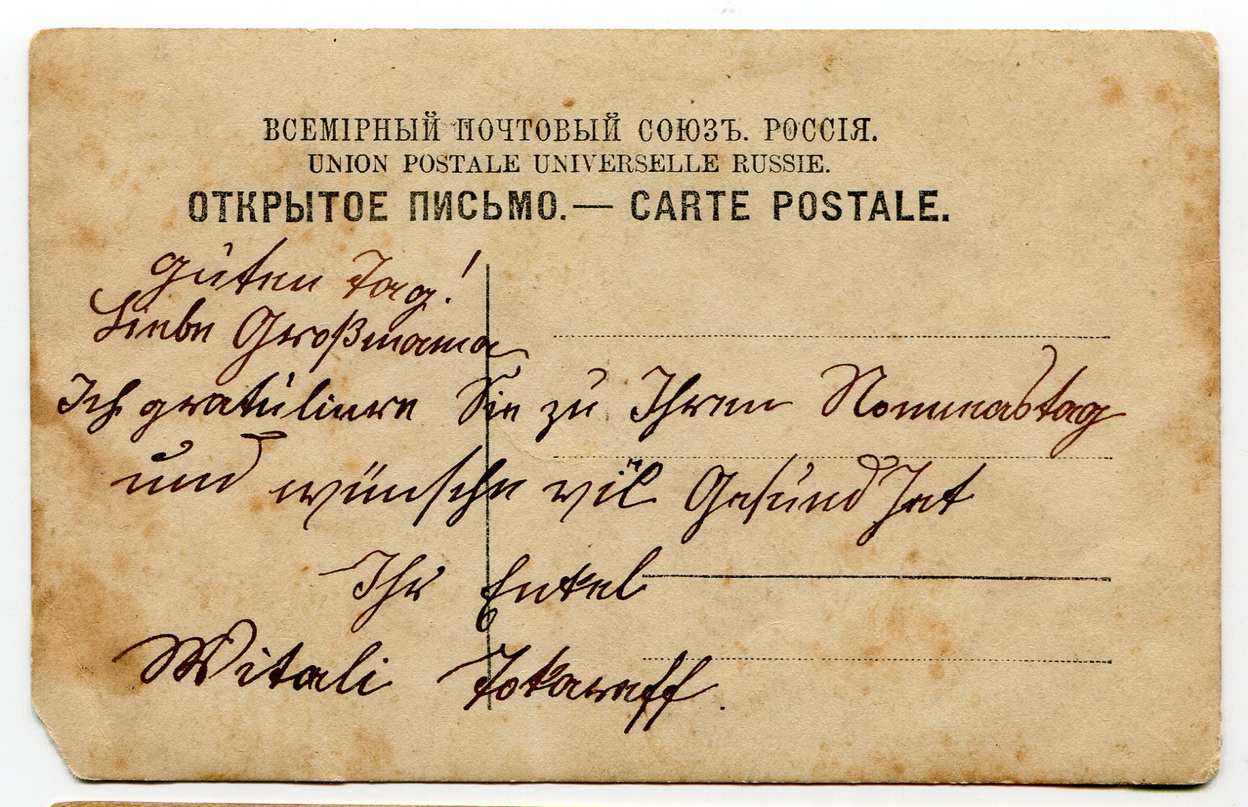 ВСЕМІРНЫЙ ПОЧТОВЫЙ СОЮЗЪ. РОССІЯ.
UNION POSTALE UNIVERSELLE RUSSIE.
ОТКРЫТОЕ ПИСЬМО.— CARTE POSTALE.
Guten Tag!
Liebe Großmama
Ich gratuliere Sie zu Ihren Nomenastag
und wünsche vil Gesundheit
Ihr Enkel
Witali Tokareff.